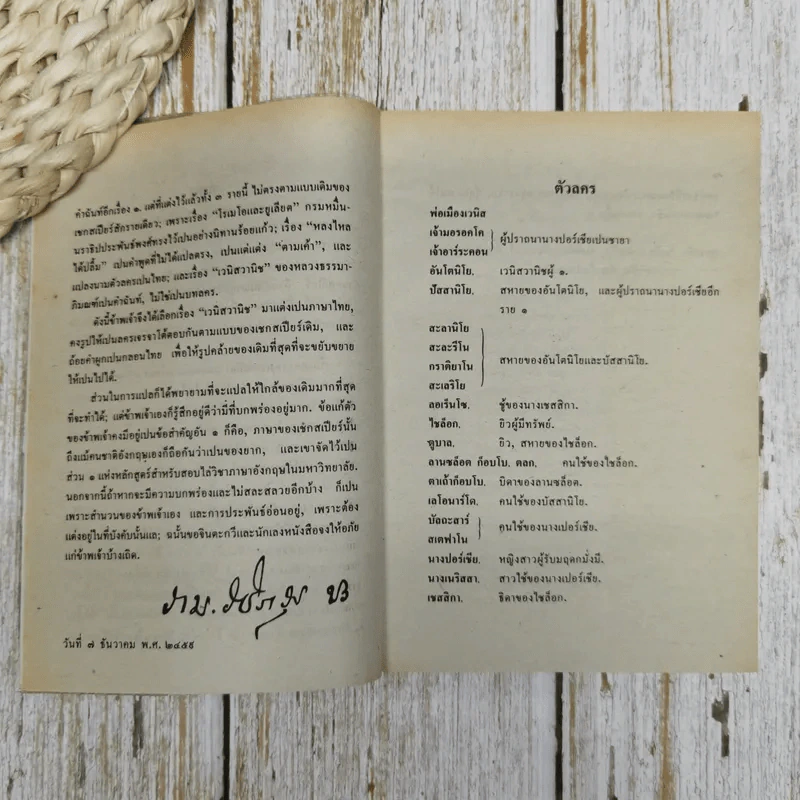 คำฉันท์อีกเรื่อง ๑. แต่ที่แต่งไว้แล้วทั้ง ๓ รายนี้ ไม่ตรงตามแบบเดิมของ
เชกสเปียร์สักรายเดียว; เพราะเรื่อง "โรเมโอและยูเลียต" กรมหมื่น-
นราธิปประพันธ์พงศ์ทรงไว้เป็นอย่างนิทานร้อยแก้ว; เรื่อง "หลงไหล
ได้ปลื้ม" เป็นคำพูดที่ไม่ได้แปลตรง, เป็นแต่แต่ง "ตามเค้า", และ
แปลงนามตัวลครเป็นไทย; และเรื่อง "เวนิสวานิช" ของหลวงธรรมา-
ภิมณฑ์เป็นคำฉันท์, ไม่ใช่เป็นบทลคร.
ดังนี้ข้าพเจ้าจึงได้เลือกเรื่อง "เวนิสวานิช" มาแต่งเป็นภาษาไทย,
คงรูปให้เป็นลครเจรจาโต้ตอบกันตามแบบของเชกสเปียร์เดิม, และ
ถ้อยคำผูกเป็นกลอนไทย เพื่อให้รูปคล้ายของเดิมที่สุดที่จะขยับขยาย
ให้เป็นไปได้.
ส่วนในการแปลก็ได้พยายามที่จะแปลให้ใกล้ของเดิมมากที่สุด
ที่จะทำได้; แต่ข้าพเจ้าเองก็รู้สึกอยู่ดีว่ามีที่บกพร่องอยู่มาก. ข้อแก้ตัว
ของข้าพเจ้าคงมีอยู่เป็นข้อสำคัญอัน ๑ ก็คือ, ภาษาของเช้กสเปียร์นั้น
ถึงแม้คนชาติอังกฤษเองก็ถือกันว่าเปนของยาก, และเขาจัดไว้เปน
ส่วน ๑ แห่งหลักสูตร์สำหรับสอบไล่วิชาภาษาอังกฤษในมหาวิทยาลัย.
นอกจากนี้ถ้าหากจะมีความบกพร่องและไม่สละสลวยอีกบ้าง ก็เปน
เพราะสำนวนของข้าพเจ้าเอง และการประพันธ์อ่อนอยู่, เพราะต้อง
แต่งอยู่ในที่บังคับนั้นแล; ฉนั้นขอจินตะกวีและนักเลงหนังสือจงให้อภัย
แก่ข้าพเจ้าบ้างเถิด.
วันที่ ๗ ธันวาคม พ.ศ. ๒๔๕๙
ตัวลคร
พ่อเมืองเวนิส
เจ้ามอรอคโค
ผู้ปราถนานางปอร์เชียเปนชายา
เจ้าอาร์ระคอน
อันโตนิโย. เวนิสวานิชผู้ ๑.
บัสสานิโย. สหายของอันโตนิโย, และผู้ปราถนานางปอร์เชียอีก
ราย ๑
สะลานิโย
สะละรีโน
กราติยาโน
สหายของอันโตนิโยและบัสสานิโย.
สะเลริโย
ลอเร็นโซ. ชู้ของนางเชสสิกา.
ไชล็อก. ยิวผู้มีทรัพย์.
ตูบาล. ยิว, สหายของไชล็อก.
ลานซล็อต ก็อบโบ. ตลก. คนใช้ของไชล็อก.
ตาเถ้าก็อบโบ. บิดาของลานซล็อต.
เลโอนาร์โด. คนใช้ของบัสสานิโย.
บัลถะสาร์
คนใช้ของนางเปอร์เชีย.
สเตฟาโน
นางปอร์เชีย. หญิงสาวผู้รับมฤดกมั่งมี.
นางเนริสสา. สาวใช้ของนางเปอร์เชีย.
เชสสิกา. ธิดาของไชล็อก.